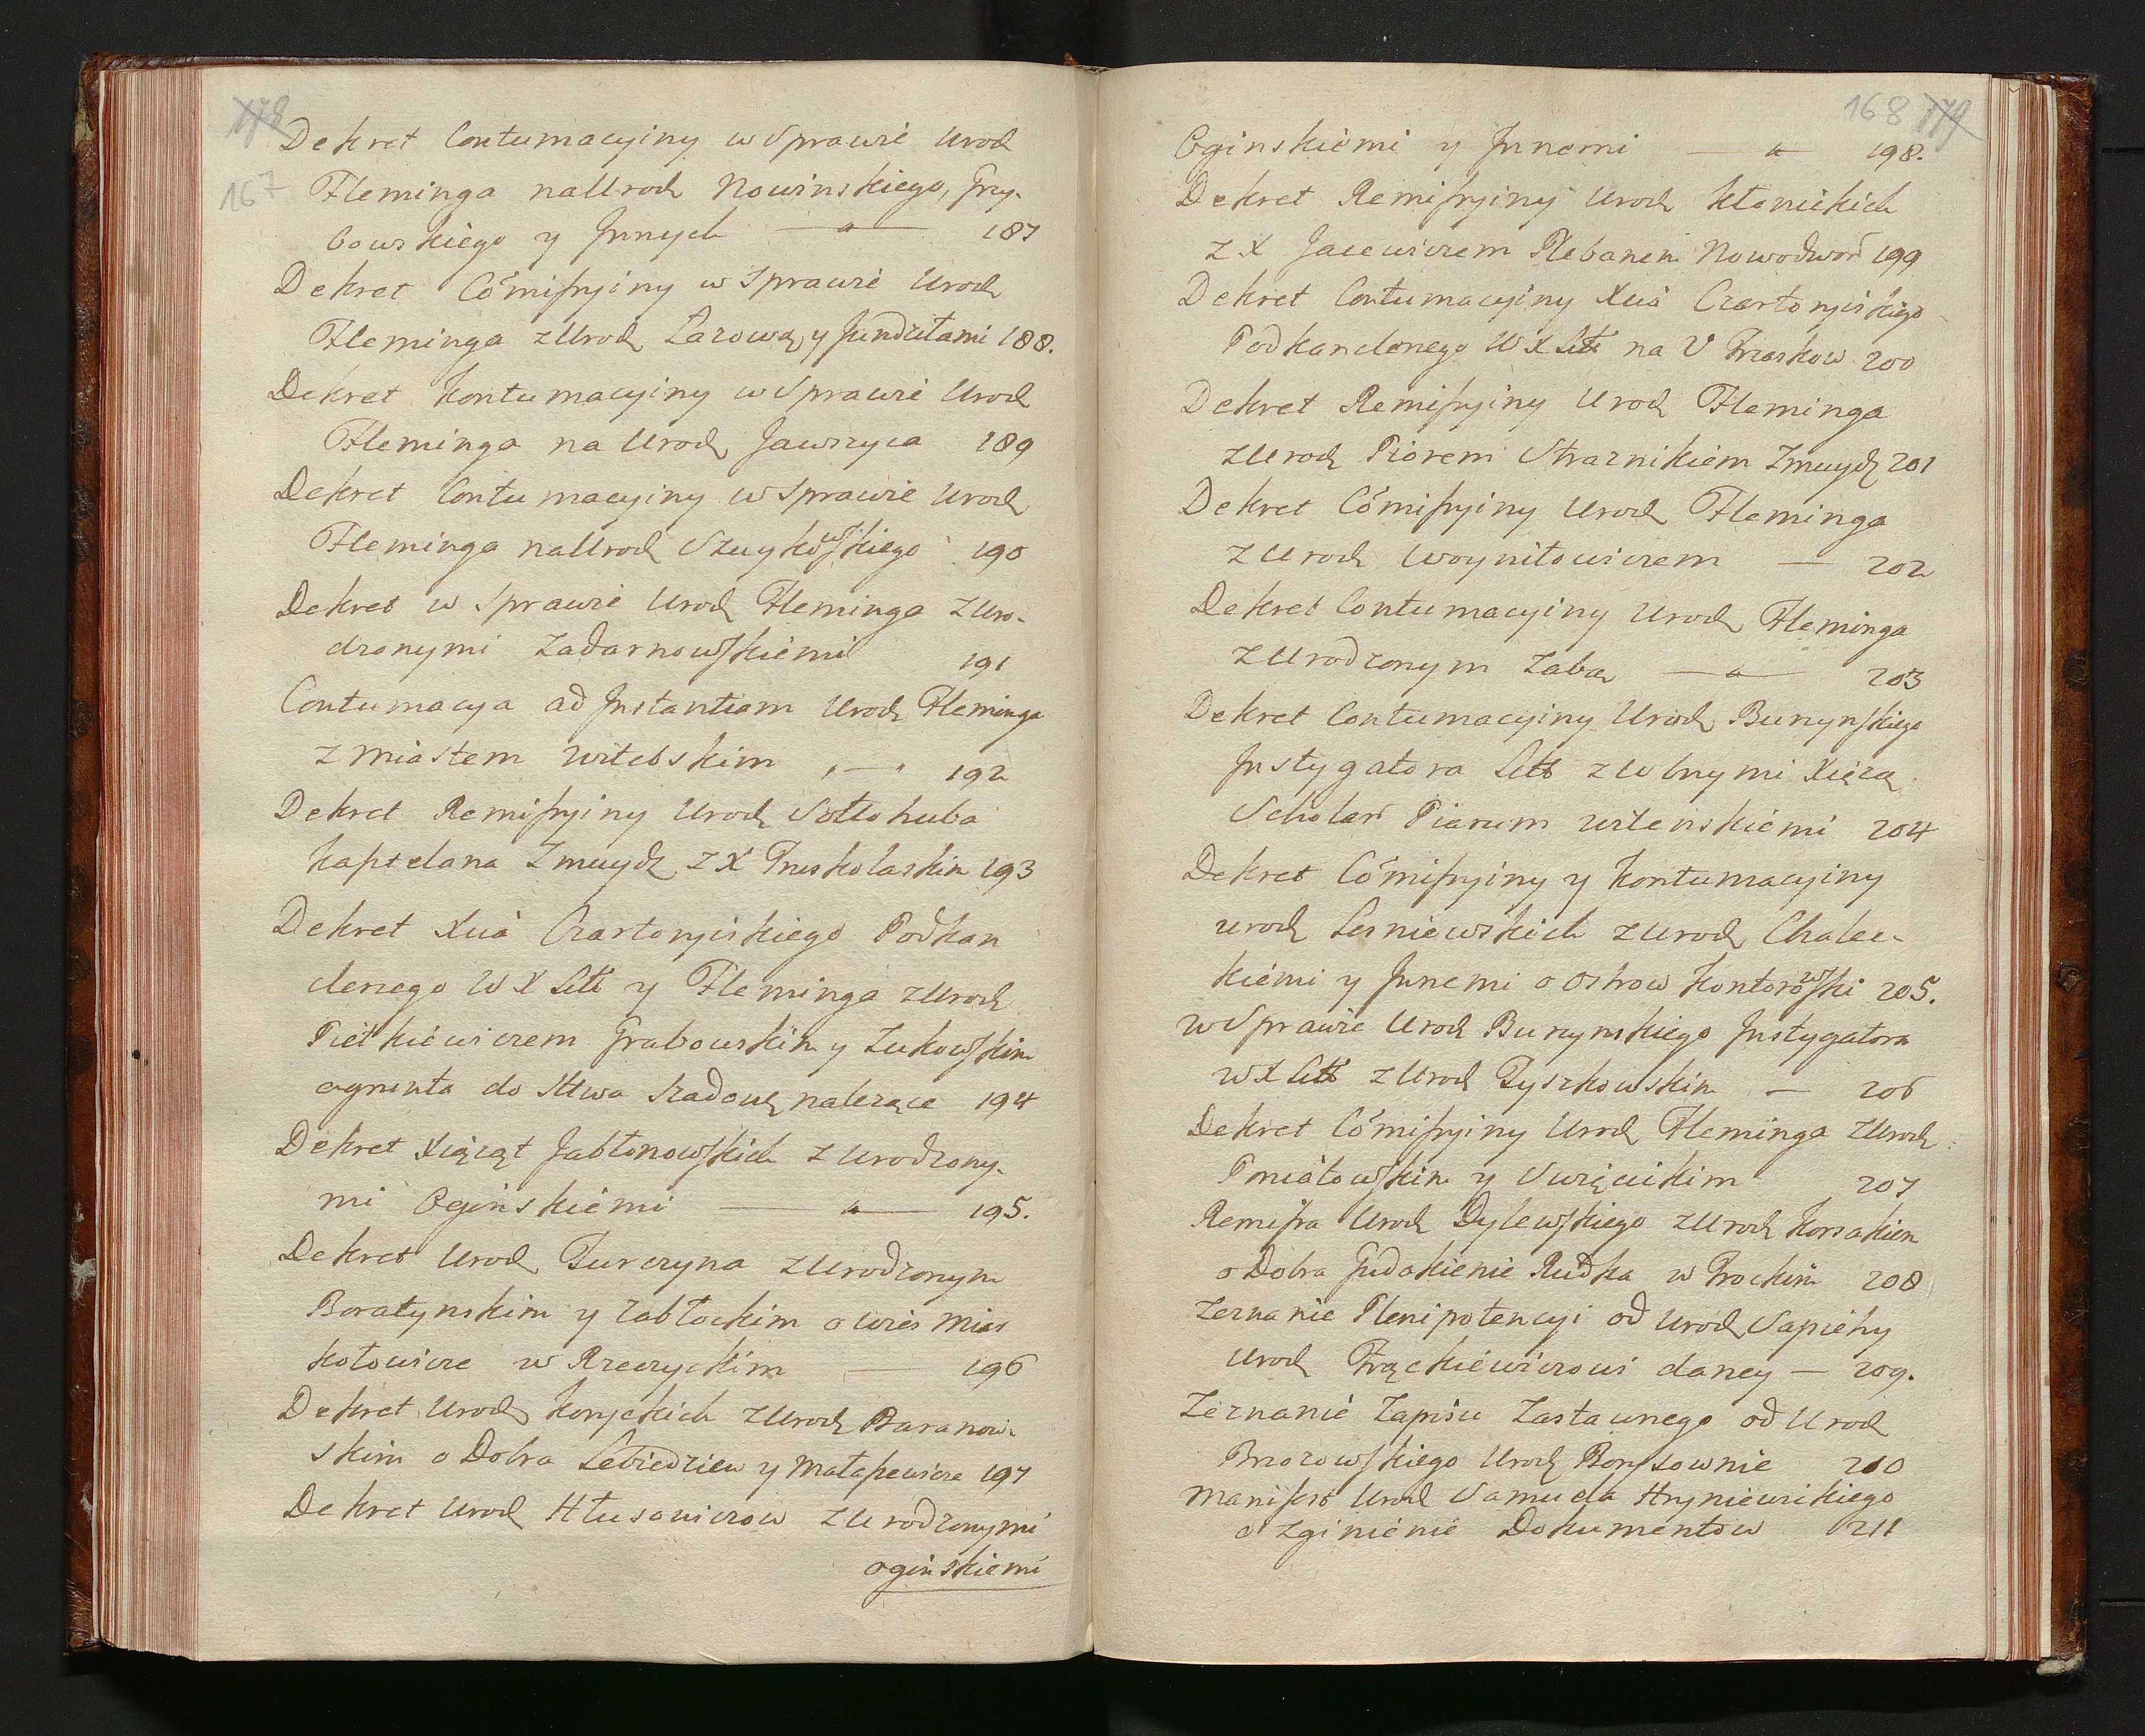 178
167
Dekret Contumacyiny w Sprawie Urod
Fleminga na Urod Nowinskiego, Gry-
bowskiego y Jnnych — " — 187
Dekret Cómissyiny w Sprawie Urod
Fleminga z Urod Łazową y Jundziłłami 188.
Dekret Kontumacyiny w Sprawie Urod
Fleminga na Urod Jawszyca 189
Dekret Contumacyiny w Sprawie Urod
Fleminga na Urod Szuykowskiego 190
Dekret w Sprawie Urod Fleminga z Uro-
dzonymi Zadarnowskiemi 191
Contumacya ad Jnstantiam Urod Fleminga
z miastem witebskim „ — „ 192
Dekret Remissyiny Urod Sołłohuba
Kasztelana Zmuydz z X Pruskolaskim 193
Dekret Xcia Czartoryiskiego Podkan
clerzego W X Litt y Fleminga z Urod
Pietkiewiczem Grabowskim y Zukowskim
agrunta do Sttwa Szadowę nalezące 194
Dekret Xiążąt Jabłonowskich z Urodzony-
mi Oginskiemi — " — 195.
Dekret Urod Turczyna z Urodzonym
Boratynskim y Zabłockim o wies Mias
kołowicze w Rzeczyckim — 196
Dekret Urod Koryckich z Urod Baranow-
skim o Dobra Lebiedziew y Małasewicze 197
Dekret Urod Hłusowiczow z Urodzonymi
oginskiemi
168 179
Oginskiemi y Jnnemi — " — 198.
Dekret Remissyiny Urod Kłonickich
z X Jacewiczem Plebanem Nowodwor 199
Dekret Contumacyiny Xcia Czartoryiskiego
Podkanclerzego W X Litt na U Przeskow 200
Dekret Remissyiny Urod Fleminga
z Urod Piorem Straznikiem Zmuydz 201
Dekret Cómissyiny Urod Fleminga
z Urod Woyniłowiczem — 202
Dekret Contumacyiny Urod Fleminga
z Urodzonym Zabą — " — 203
Dekret Contumacyiny Urod Burzynskiego
Jnstygatora Litt z Wbnymi Xiężą
Scholar Piarum wilenskiemi 204
Dekret Cómissyiny y Kontumacyiny
urod Lesniewskich z Urod Chalec-
kiemi y Jnnemi o Ostrow Kontorowski 205.
w Sprawie Urod Burzynskiego Jnstygatora
w X Litt z Urod Tyszkowskim — 206
Dekret Cómissyiny Urod Fleminga z Urod
Poniatowskim y Swięcickim 207
Remissa Urod Dylewskiego z Urod Korsakiem
o Dobra Gudakienie Rudka w Trockim 208
Zeznanie Plenipotencyi od Urod Sapiehy
Urod Frąckiewiczowi daney — 209.
Zeznanie Zapisu Zastawnego od Urod
Brzozowskiego Urod Borysownie 210
Manifest Urod Samuela Hryniewickiego
o Zginienie Dokumentow 211